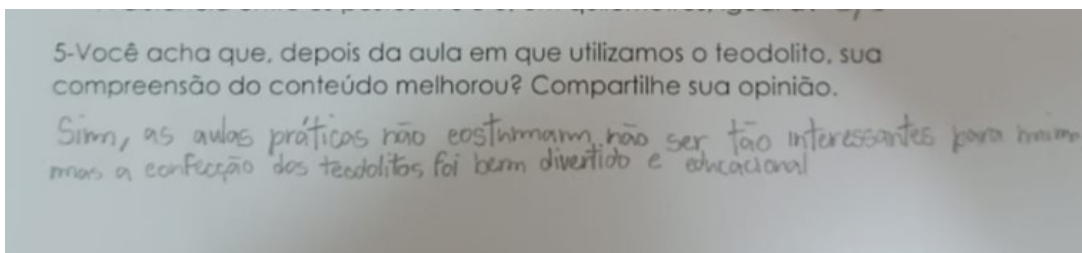 5-Você acha que, depois da aula em que utilizamos o teodolito, sua
compreensão do conteúdo melhorou? Compartilhe sua opinião.
Sim, as aulas práticas não costumam não ser tão interessantes para mim
mas a confecção dos teodolitos foi bem divertido e educacional